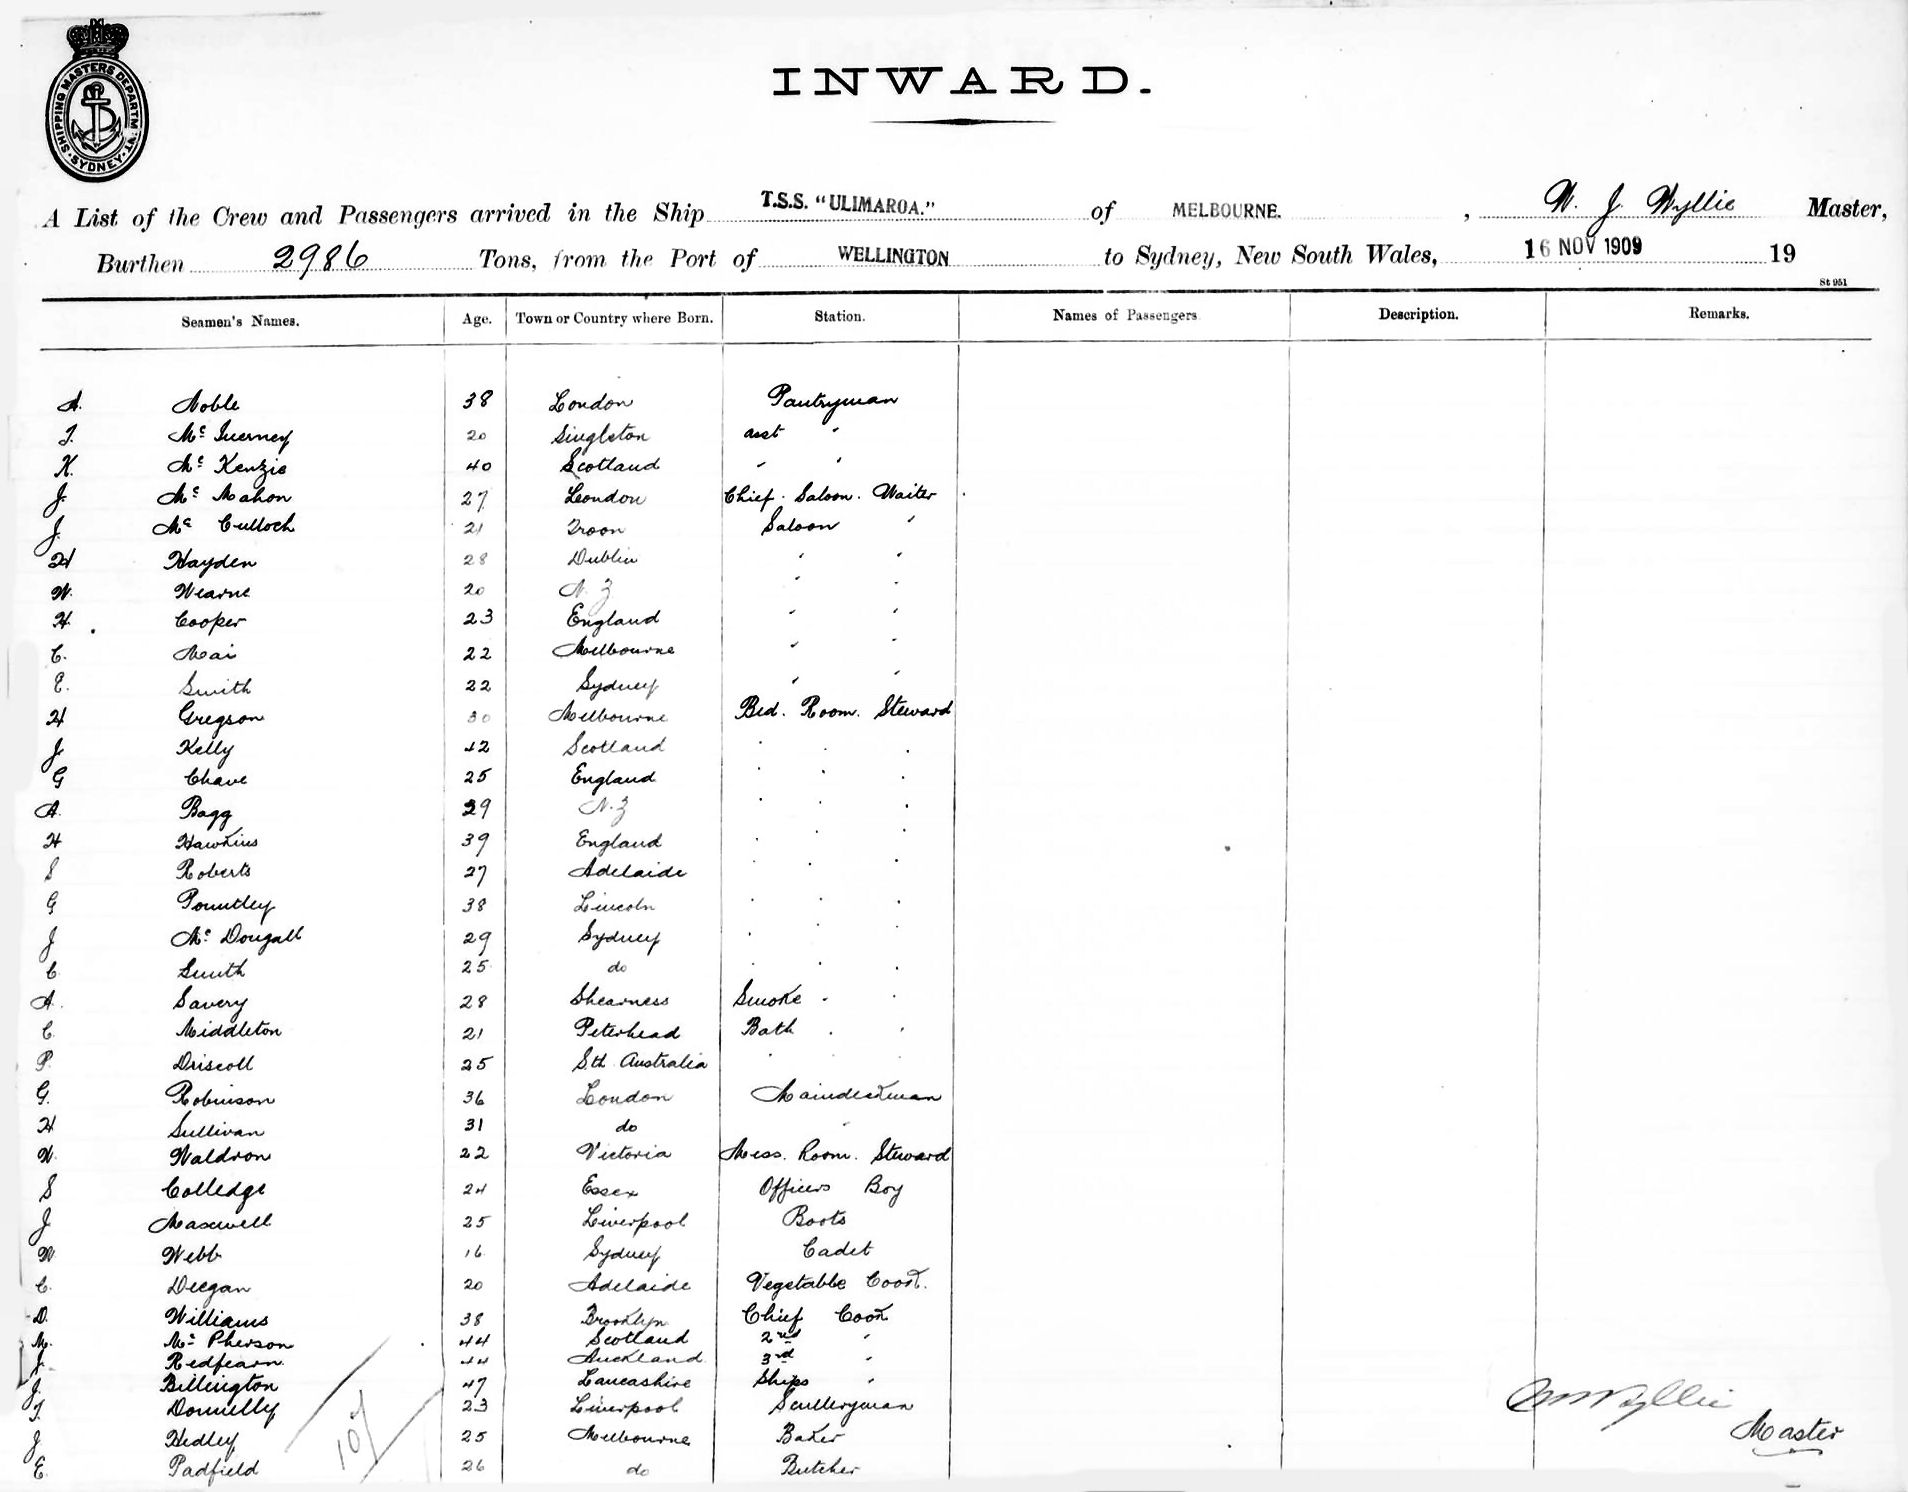 SHIPPING MASTERS DEPARTMENT SYDNEY
INWARD.
A List of the Crew and Passengers arrived in the Ship T.S.S. "ULIMAROA." of MELBOURNE. , W. J. Wyllie Master,
Burthen 2986 Tons, from the Port of WELLINGTON to Sydney, New South Wales, 16 NOV 1909 19
St 951
Seamen's Names. Age. Town or Country where Born. Station. Names of Passengers Description. Remarks.
A. Noble 38 London Pantryman
T. Mc Guerney 20 Singleton asst "
K. Mc Kenzie 40 Scotland " "
J. Mc Mahon 27 London Chief. Saloon. Waiter
J. Mc Culloch 21 Troon Saloon "
H Hayden 28 Dublin " "
W. Wearne 20 N. Z " "
H. Cooper 23 England " "
C. Mai 22 Melbourne " "
E. Smith 22 Sydney " "
H Gregson 30 Melbourne Bed. Room. Steward
J. Kelly 42 Scotland " " "
G Chave 25 England " " "
A. Bagg 29 N. Z " " "
H Hawkins 39 England " " "
S Roberts 27 Adelaide " " "
G Pountley 38 Lincoln " " "
J Mc Dougall 29 Sydney " " "
C. Smith 25 do " " "
A. Savery 28 Shearness Smoke " "
C. Middleton 21 Peterhead Bath " "
P. Driscoll 25 Sth Australia " " "
G. Robinson 36 London Maindeckman
H Sullivan 31 do "
W. Waldron 22 Victoria Mess. Room. Steward
S Colledge 24 Essex Officers Boy
J Maxwell 25 Liverpool Boots
W Webb 16 Sydney Cadet
C. Deegan 20 Adelaide Vegetable Cook.
D. Williams 38 Brooklyn Chief Cook
M. Mc Pherson 44 Scotland 2nd "
J. Redfearn 44 Auckland 3rd "
J. Billington 47 Lancashire Ships "
T. Donnelly 23 Liverpool Sculleryman
J Hedley 25 Melbourne Baker
E. Padfield 26 do Butcher
107
W J Wyllie
Master